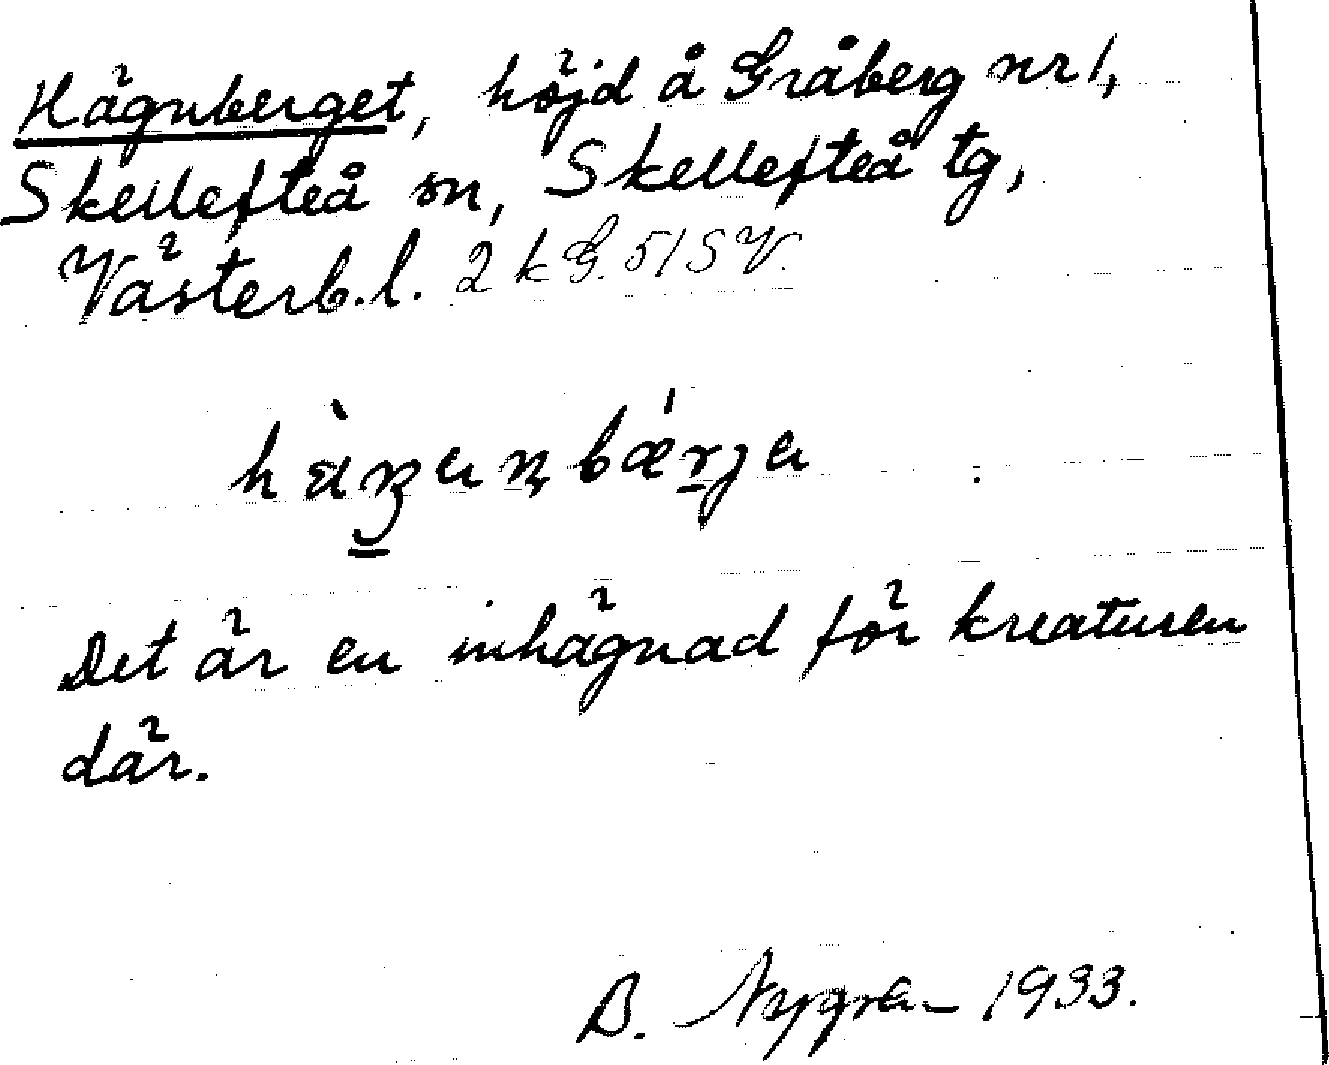 Hägnberget, höjd å Gråberg nr 1,
Skellefteå sn, Skellefteå tg,
Västerb.l. 2 k G. 51 SV.
Det är en inhägnad för kreaturen
där.
B. Nygren 1933.